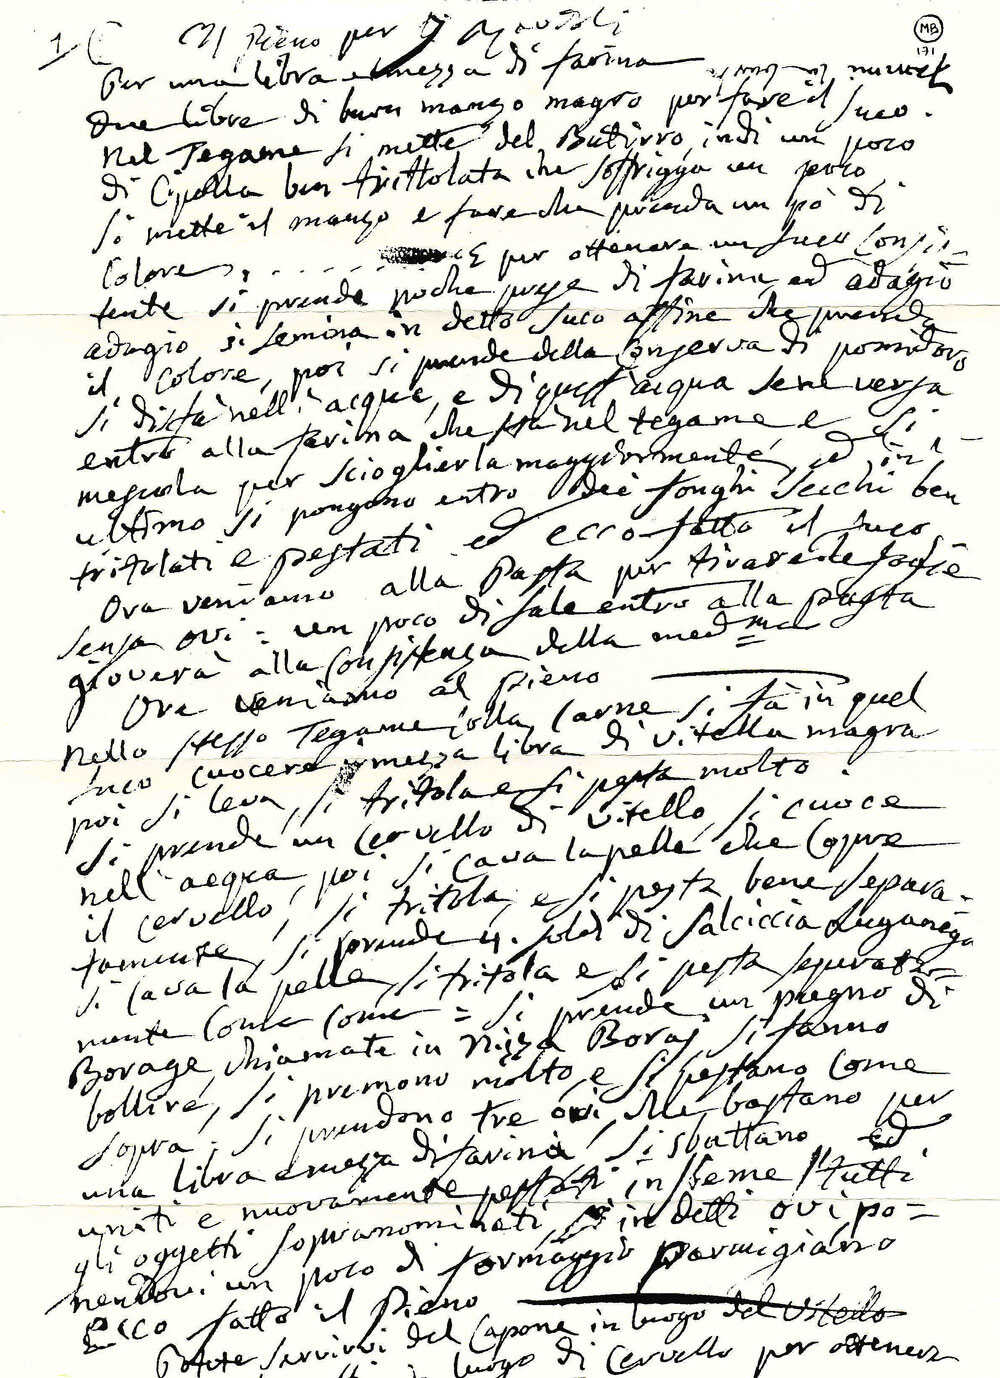 1
MB
171
Il Pieno per i Ravioli
Per una libra e mezza di farina
due libre di buon manzo magro per fare il suco.
Nel Tegame si mette del Butirro, indi un poco
di Cipolla ben trittolata che soffrigga un poco
si mette il manzo e fare che prenda un pò di
Colore, . . . . . . . . . E per ottenere un suco Consis-
tente si prende poche prese di farina, ed adagio
adagio si semina in detto suco affine che prenda
il colore, poi si prende della Conserva di pomidoro
si disfà nell'acqua, e di quest'acqua se ne versa
entro alla farina che stà nel tegame e si
mescola per scioglierla maggiormente, ed in
ultimo si pongono entro dei fonghi secchi ben
tritolati e pestati ed ecco fatto il suco
Ora veniamo alla Pasta per tirare le foglie
senza ovi = un poco di sale entro alla pasta
gioverà alla Consistenza della med.ma
Ora veniamo al pieno
Nello stesso Tegame colla carne si fà in quel
suco cuocere mezza libra di vitella magra
poi si leva, si tritola e si pesta molto.
Si prende un cervello di vitello, si cuoce
nell'acqua, poi si cava la pelle che copre
il cervello, si tritola, e si pesta bene separa-
tamente, si prende 4. soldi di salciccia Luganega
si cava la pelle, si tritola e si pesta separata=
mente come come = si prende un pugno di
Borage, chiamate in Nizza Boraj si fanno
bollire, si premono molto, e si pestano come
sopra. si prendono tre ovi, che bastano per
una libra e mezza di farina si sbattano, ed
uniti e nuovamente pestati insieme tutti
gli oggetti sopranominati, in detti ovi po=
nendovi un poco di formaggio parmigiano
Ecco fatto il Pieno
Potete servirvi del Capone in luogo del vitello
luogo di cervello per ottenere